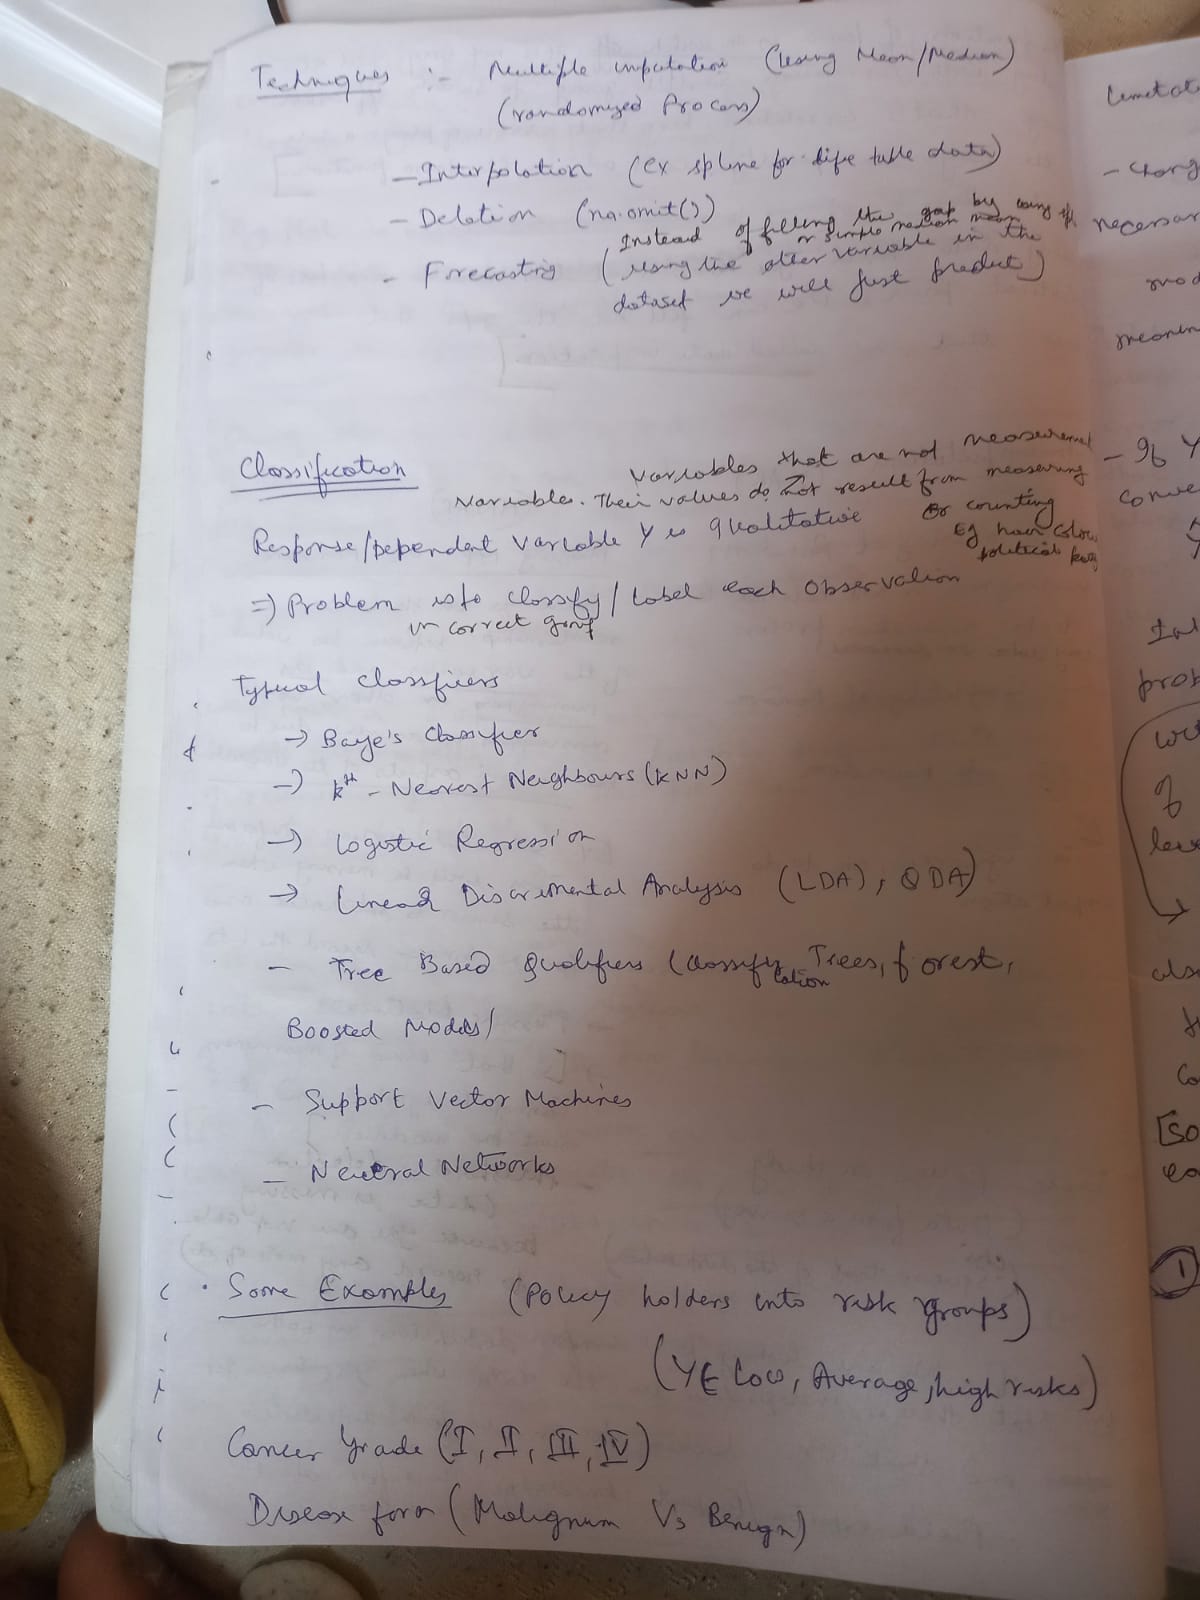 Techniques :- Multiple imputation (Using Mean/Median)
(randomized Process)
- Interpolation (ex spline for life table data)
- Deletion (na.omit())
Instead of filling the gap by using
or simple median mean
- Forecasting (using the other variable in the
dataset we will just predict)
Classification
Variables that are not measurement
variables. Their values do not result from measuring
or counting
Eg hair colour
political party
Response/Dependent Variable Y is qualitative
=) Problem is to classify/Label each Observation
in correct group
Typical classifiers
→ Baye's Classifier
→ kth - Nearest Neighbours (KNN)
→ Logistic Regression
→ Linear Discrimental Analysis (LDA), QDA)
- Tree Based Qualifiers (Classification Trees, forest,
Boosted Models/
- Support Vector Machines
- Neural Networks
• Some Examples (Policy holders into risk groups)
(Y∈ Low, Average, high risks)
Cancer Grade (I, II, III, IV)
Disease form (Malignum Vs Benign)
- Chang
necessar
mod
meanin
- If Y
conve
Y
prob
of
als
Co
[So
1